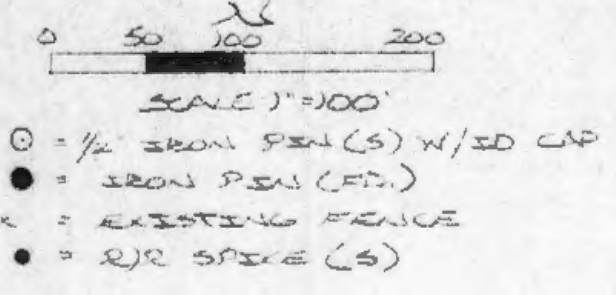 0 50 100 200
SCALE 1"=100'
⊙ = 1/2 IRON PIN(S) W/ID CAP
● = IRON PIN (FD.)
x = EXISTING FENCE
• = R/R SPIKE (S)